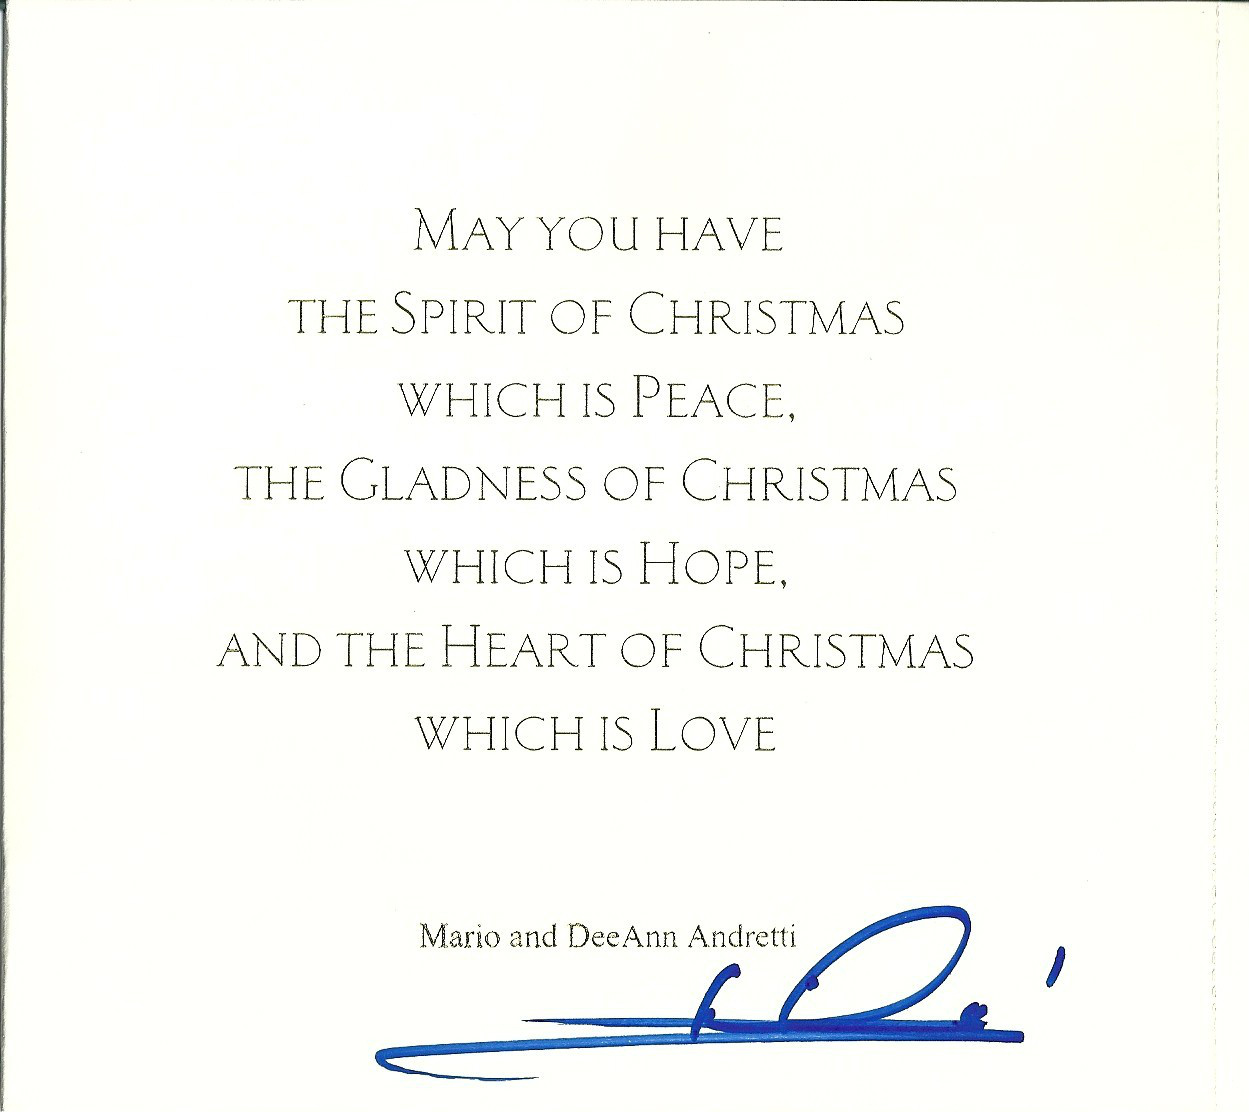 May you have
the Spirit of Christmas
which is Peace,
the Gladness of Christmas
which is Hope,
and the Heart of Christmas
which is Love
Mario and DeeAnn Andretti